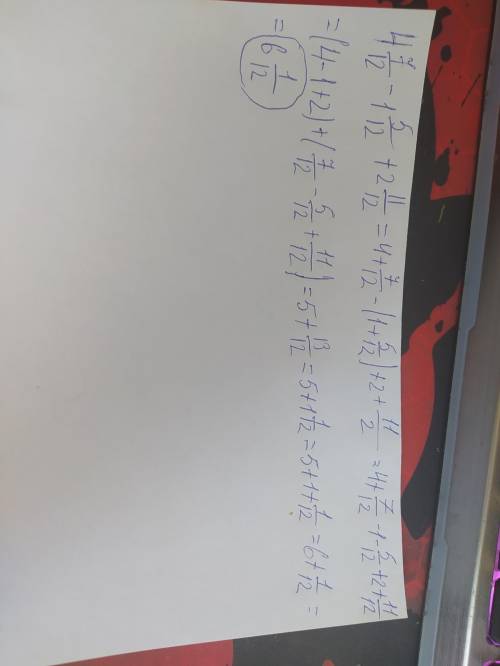 4 7/12 - 1 5/12 + 2 11/12 = 4 + 7/12 - (1 + 5/12) + 2 + 11/2 = 4 + 7/12 - 1 - 5/12 + 2 + 11/12
= (4 - 1 + 2) + (7/12 - 5/12 + 11/12) = 5 + 13/12 = 5 + 1 1/12 = 5 + 1 + 1/12 = 6 + 1/12 =
= 6 1/12